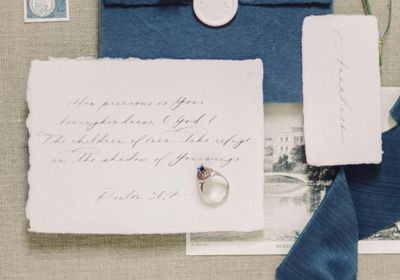 How precious is Your
lovingkindness, O God!
The children of men take refuge
in the shadow of Your wings.
Psalm 36:7